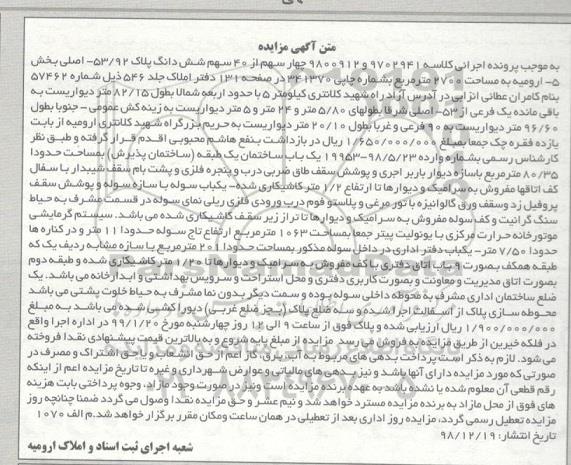 متن آگهی مزایده
به موجب پرونده اجرائی کلاسه ۹۷۰۲۹۴۱ و ۹۸۰۰۹۱۲ چهار سهم از ۴۰ سهم شش دانگ پلاک ۵۳/۹۲- اصلی بخش
۵- ارومیه به مساحت ۲۷۰۰ مترمربع بشماره چاپی ۳۴۱۳۷۰ در صفحه ۱۳۱ دفتر املاک جلد ۵۴۶ ذیل شماره ۵۷۴۶۲
بنام کامران عطائی انزابی در آدرس آزاد راه شهید کلانتری کیلومتر ۵ با حدود اربعه شمالا بطول ۸۲/۱۵ متر دیواریست به
باقی مانده یک فرعی از ۵۳- اصلی شرقا بطولهای ۵/۸۰ متر و ۲۴ متر و ۵ متر دیواریست به زینه کش عمومی - جنوبا بطول
۹۶/۶۰ متر دیواریست به ۹۰ فرعی و غربا بطول ۲۰/۱۰ متر دیواریست به حریم بزرگراه شهید کلانتری ارومیه از بابت
یازده فقره چک جمعا بمبلغ ۱/۶۵۰/۰۰۰/۰۰۰ ریال در بازداشت بنفع هاشم محبوبی اقدم قرار گرفته و طبق نظر
کارشناس رسمی بشماره وارده ۹۸/۵/۲۳-۱۹۹۵۳ یک باب ساختمان یک طبقه (ساختمان پذیرش) بمساحت حدودا
۸۰/۳۵ مترمربع باسازه دیوار باربر اجری و پوشش سقف طاق ضربی درب و پنجره فلزی و پشت بام سقف شیبدار با سفال
کف اتاقها مفروش به سرامیک و دیوارها تا ارتفاع ۱/۲ متر کاشیکاری شده- یکباب سوله با سازه سوله و پوشش سقف
پروفیل زد وسقف ورق گالوانیزه با تور مرغی و پلاستو فوم درب ورودی فلزی ریلی نمای سوله در قسمت مشرف به حیاط
سنگ گرانیت و کف سوله مفروش به سرامیک و دیوارها تا تراز زیر سقف کاشیکاری شده می باشد. سیستم گرمایشی
موتورخانه حرارت مرکزی با یونولیت پیتر جمعا بمساحت ۱۰۶۳ مترمربع ارتفاع تاج سوله حدودا ۱۱ متر و در کناره ها
حدودا ۷/۵۰ متر- یکباب دفتر اداری در داخل سوله مذکور بمساحت حدودا ۲۰۱ مترمربع با سازه مشابه ردیف یک که
طبقه همکف بصورت چند باب اتاق دفتری با کف مفروش به سرامیک و دیوارها تا ۱/۲۰ متر کاشیکاری شده و طبقه دوم
بصورت اتاق مدیریت و معاونت و بصورت کاربری دفتری و محل استراحت و سرویس بهداشتی و آبدارخانه می باشد. یک
ضلع ساختمان اداری مشرف به محوطه داخلی سوله بوده و سمت دیگر بدون نما مشرف به حیاط خلوت پشتی می باشد
محوطه سازی پلاک از آسفالت اجرا شده و سه ضلع پلاک (بجز ضلع غربی) دیوار کشی شده می باشد به مبلغ
۱/۹۰۰/۰۰۰/۰۰۰ ریال ارزیابی شده و پلاک فوق از ساعت ۹ الی ۱۲ روز چهارشنبه مورخ ۹۹/۱/۲۰ در اداره اجرا واقع
در فلکه خیرین از طریق مزایده به فروش می رسد مزایده از مبلغ پایه شروع و به بالاترین قیمت پیشنهادی نقدا فروخته
می شود. لازم به ذکر است پرداخت بدهی های مربوط به آب، برق، گاز اعم از حق انشعاب و یا حق اشتراک و مصرف در
صورتی که مورد مزایده دارای آنها باشد و نیز بدهی های مالیاتی و عوارض شهرداری و غیره تا تاریخ مزایده اعم از اینکه
رقم قطعی آن معلوم شده یا نشده باشد به عهده برنده مزایده است و نیز در صورت وجود مازاد، وجوه پرداختی بابت هزینه
های فوق از محل مازاد به برنده مزایده مسترد خواهد شد و نیم عشر و حق مزایده نقدا وصول می گردد ضمنا چنانچه روز
مزایده تعطیل رسمی گردد، مزایده روز اداری بعد از تعطیلی در همان ساعت ومکان مقرر برگزار خواهد شد.م الف ۱۰۷۰
تاریخ انتشار: ۹۸/۱۲/۱۹
شعبه اجرای ثبت اسناد و املاک ارومیه